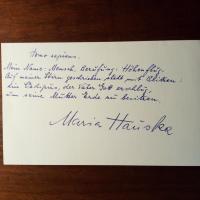 Homo sapiens.
Mein Name: Mensch, Berufung: Höhenflug.
Auf meiner Stirn geschrieben steht mit Blitzen:
Ein Oedipus, der Vater Gott erschlug,
um seine Mutter Erde zu besitzen.
Maria Hauska